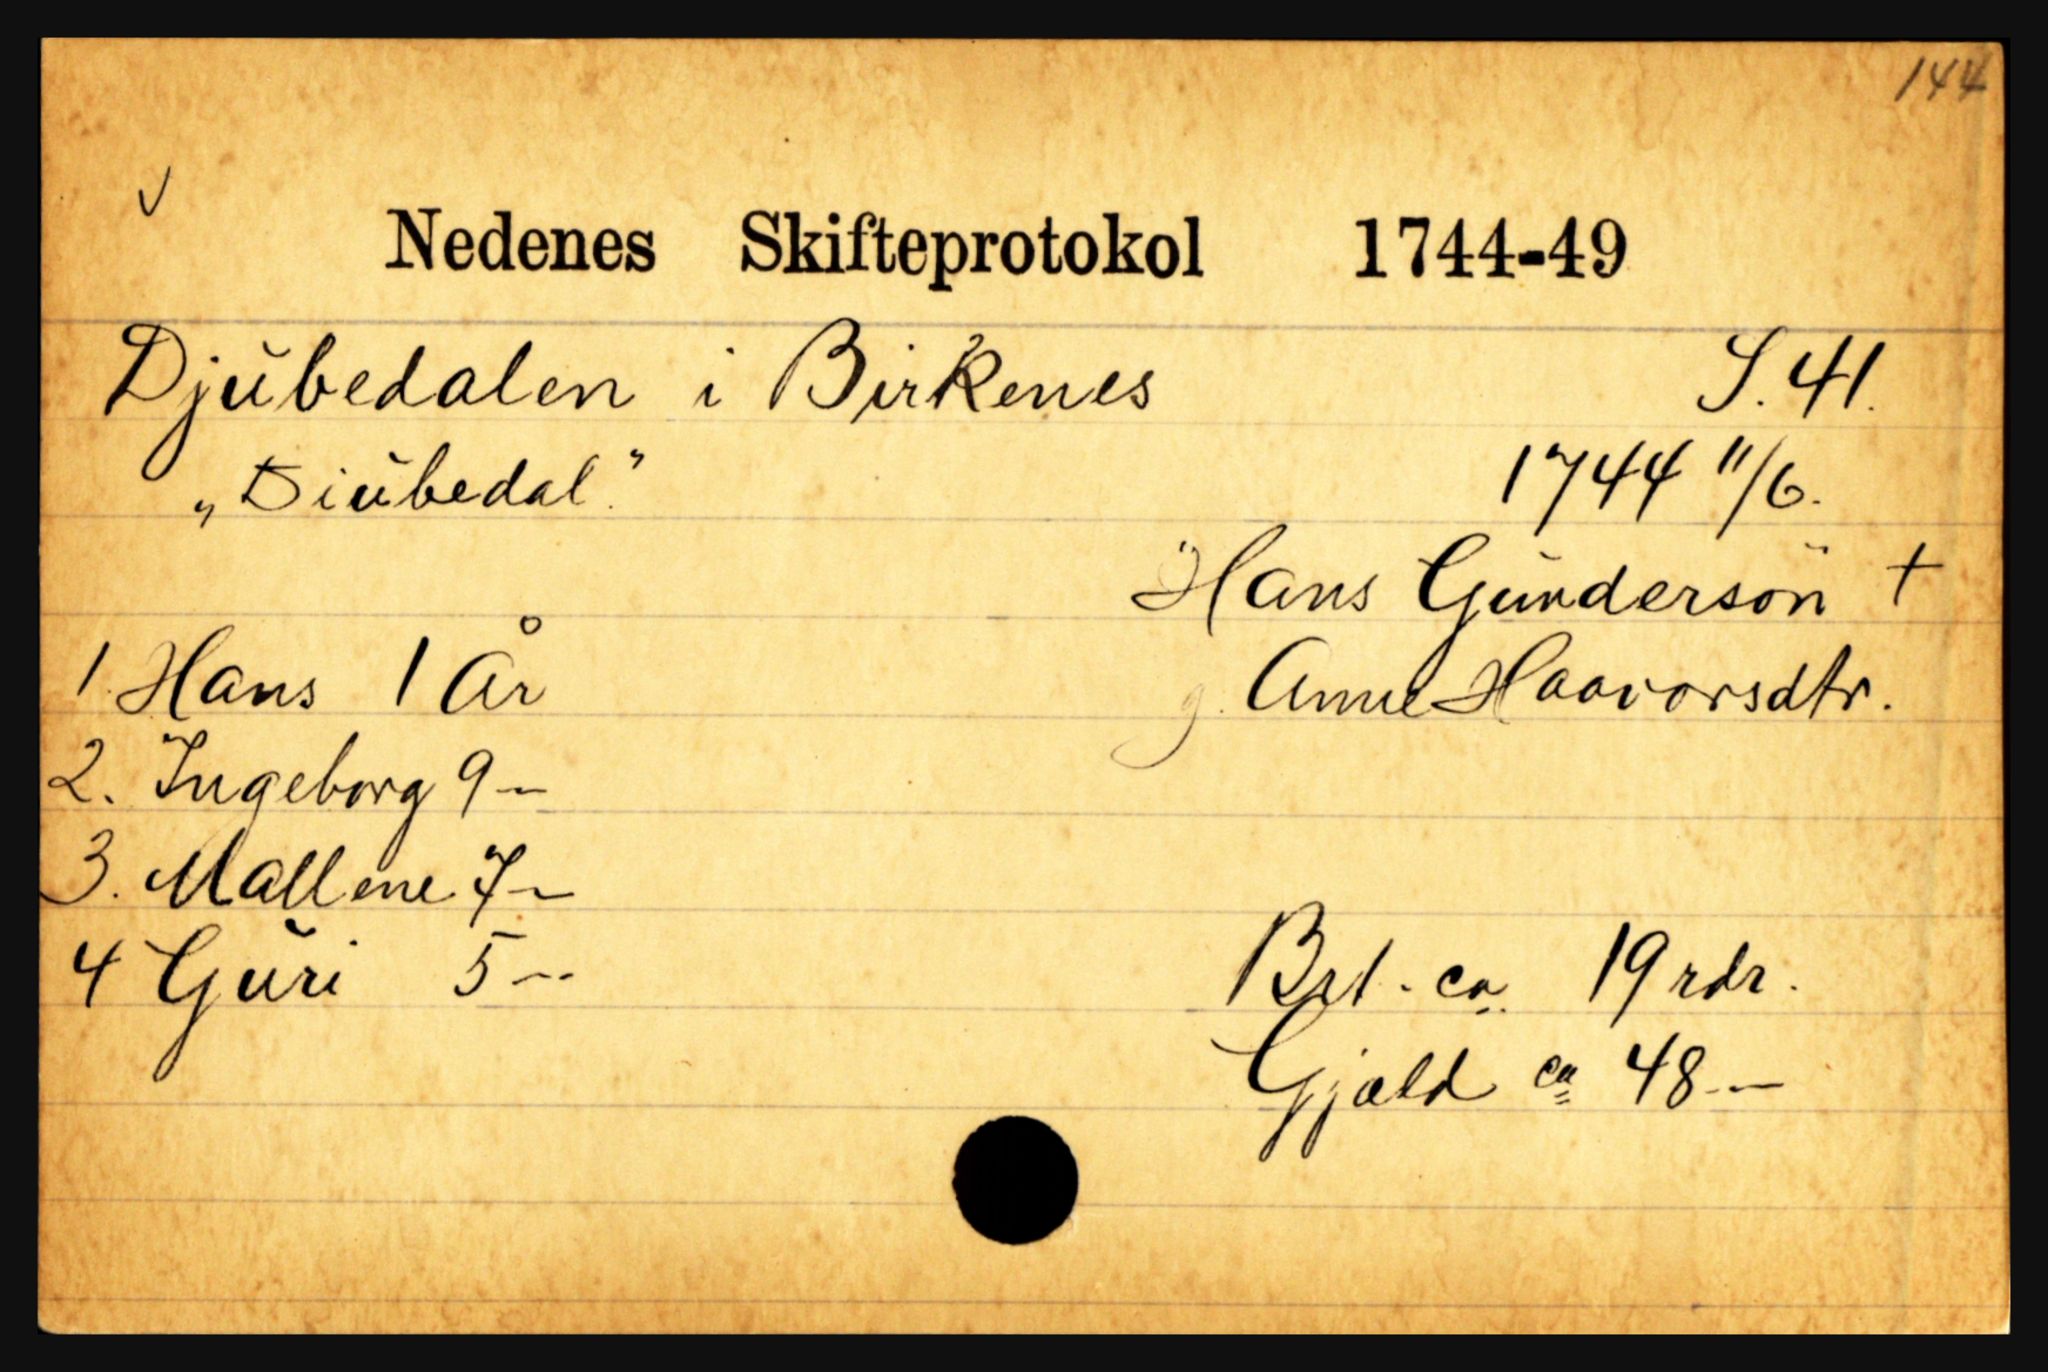 144
Nedenes Skifteprotokol 1744-49
Djŭbedalen i Birkenes S. 41.
„Diŭbedal." 1744 11/6.
Hans Gŭnderson +
1. Hans 1 År g. Anne Haavorsdtr.
2. Ingeborg 9 —
3. Mallene 7 —
4 Gŭri 5 — Brt. ca 19 rdr.
Gjæld ca 48 —